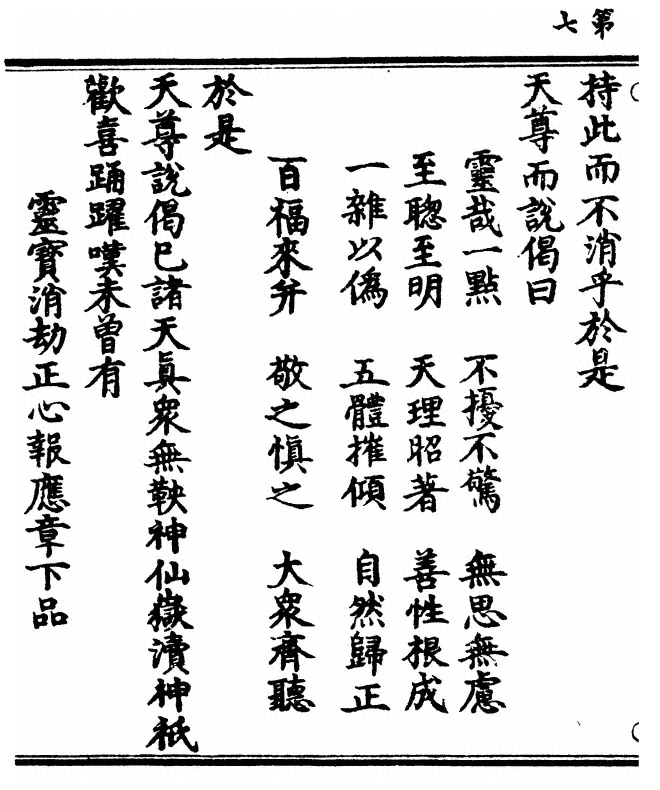 第七
持此而不消乎於是
天尊而說偈曰
靈哉一點　不擾不驚　無思無慮
至聰至明　天理昭著　善性根成
一雜以僞　五體摧傾　自然歸正
百福來并　敬之愼之　大衆齊聽
於是
天尊說偈已諸天眞衆無鞅神仙嶽瀆神祇
歡喜踊躍嘆未曾有
靈寳消劫正心報應章下品